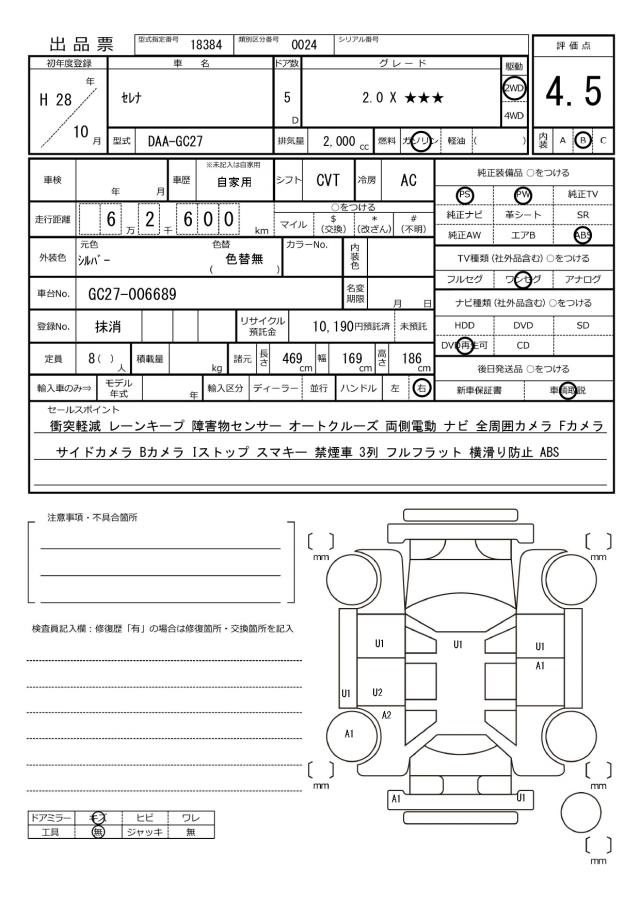 出品票 型式指定番号 18384 類別区分番号 0024 シリアル番号
評価点
初年度登録 車名 ドア数 グレード 駆動
H 28 年 10 月 セレナ 5 D 2.0 X ★★★ 2WD 4WD 4.5
型式 DAA-GC27 排気量 2,000 cc 燃料 ガソリン 軽油 ( ) 内装 A B C
車検 年 月 車歴 ※未記入は自家用 自家用 シフト CVT 冷房 AC
純正装備品 ○をつける
PS PW 純正TV
走行距離 6 2 万 6 0 0 千 km ○をつける マイル $ (交換) * (改ざん) # (不明)
純正ナビ 革シート SR
純正AW エアB ABS
外装色 元色 シルバー 色替 ( 色替無 ) カラーNo. 内装色
TV種類 (社外品含む) ○をつける
フルセグ ワンセグ アナログ
車台No. GC27-006689 名変期限 月 日
ナビ種類 (社外品含む) ○をつける
登録No. 抹消 リサイクル預託金 10,190円預託済 未預託
HDD DVD SD
DVD再生可 CD
定員 8 ( ) 人 積載量 kg 諸元 長さ 469 cm 幅 169 cm 高さ 186 cm
後日発送品 ○をつける
輸入車のみ⇒ モデル年式 年 輸入区分 ディーラー 並行 ハンドル 左 右
新車保証書 車輌取説
セールスポイント
衝突軽減 レーンキープ 障害物センサー オートクルーズ 両側電動 ナビ 全周囲カメラ Fカメラ
サイドカメラ Bカメラ Iストップ スマキー 禁煙車 3列 フルフラット 横滑り防止 ABS
注意事項・不具合箇所
検査員記入欄：修復歴「有」の場合は修復箇所・交換箇所を記入
mm mm
U1 U1 U1
A1
U1 U2
A2
A1
mm mm
A1 U1
mm
ドアミラー キズ ヒビ ワレ
工具 無 ジャッキ 無